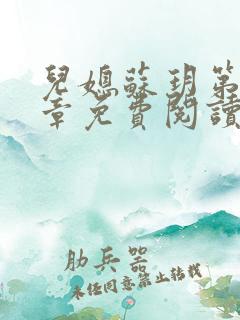 兒媳蘇玥第
章免費閱讀
肋兵器
未经同意禁止转载